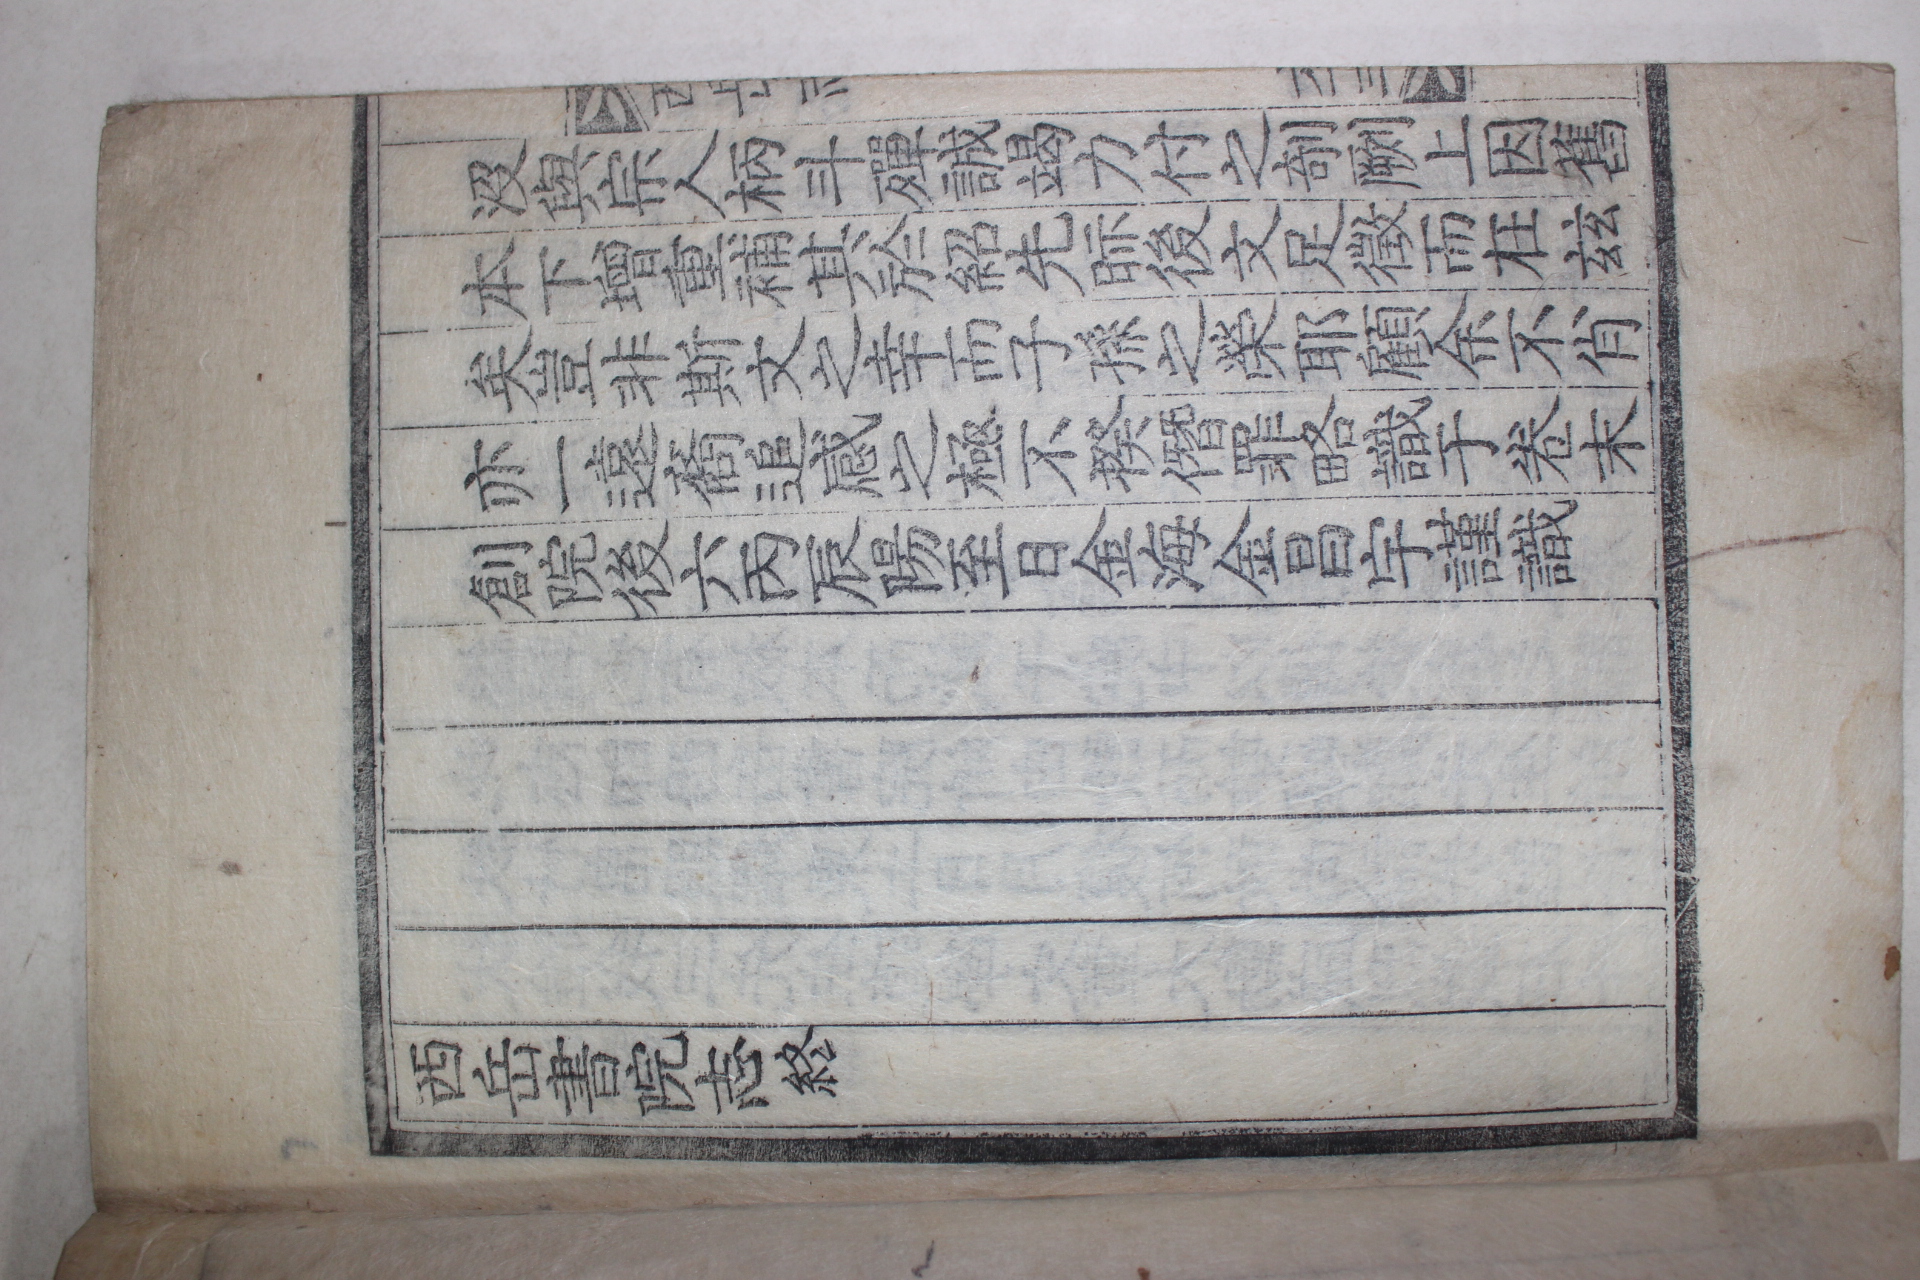 沒與宗人柄斗殫誠竭力付之剞劂上因舊
本下增重補其於紹先眎後文足徵而在玆
矣豈非斯文之幸而子孫之榮耶顧余不肖
亦一邊裔追感之極不揆僭罪略識于卷末
創院後六丙辰陽至日金海金昌宇謹識
西岳書院志終